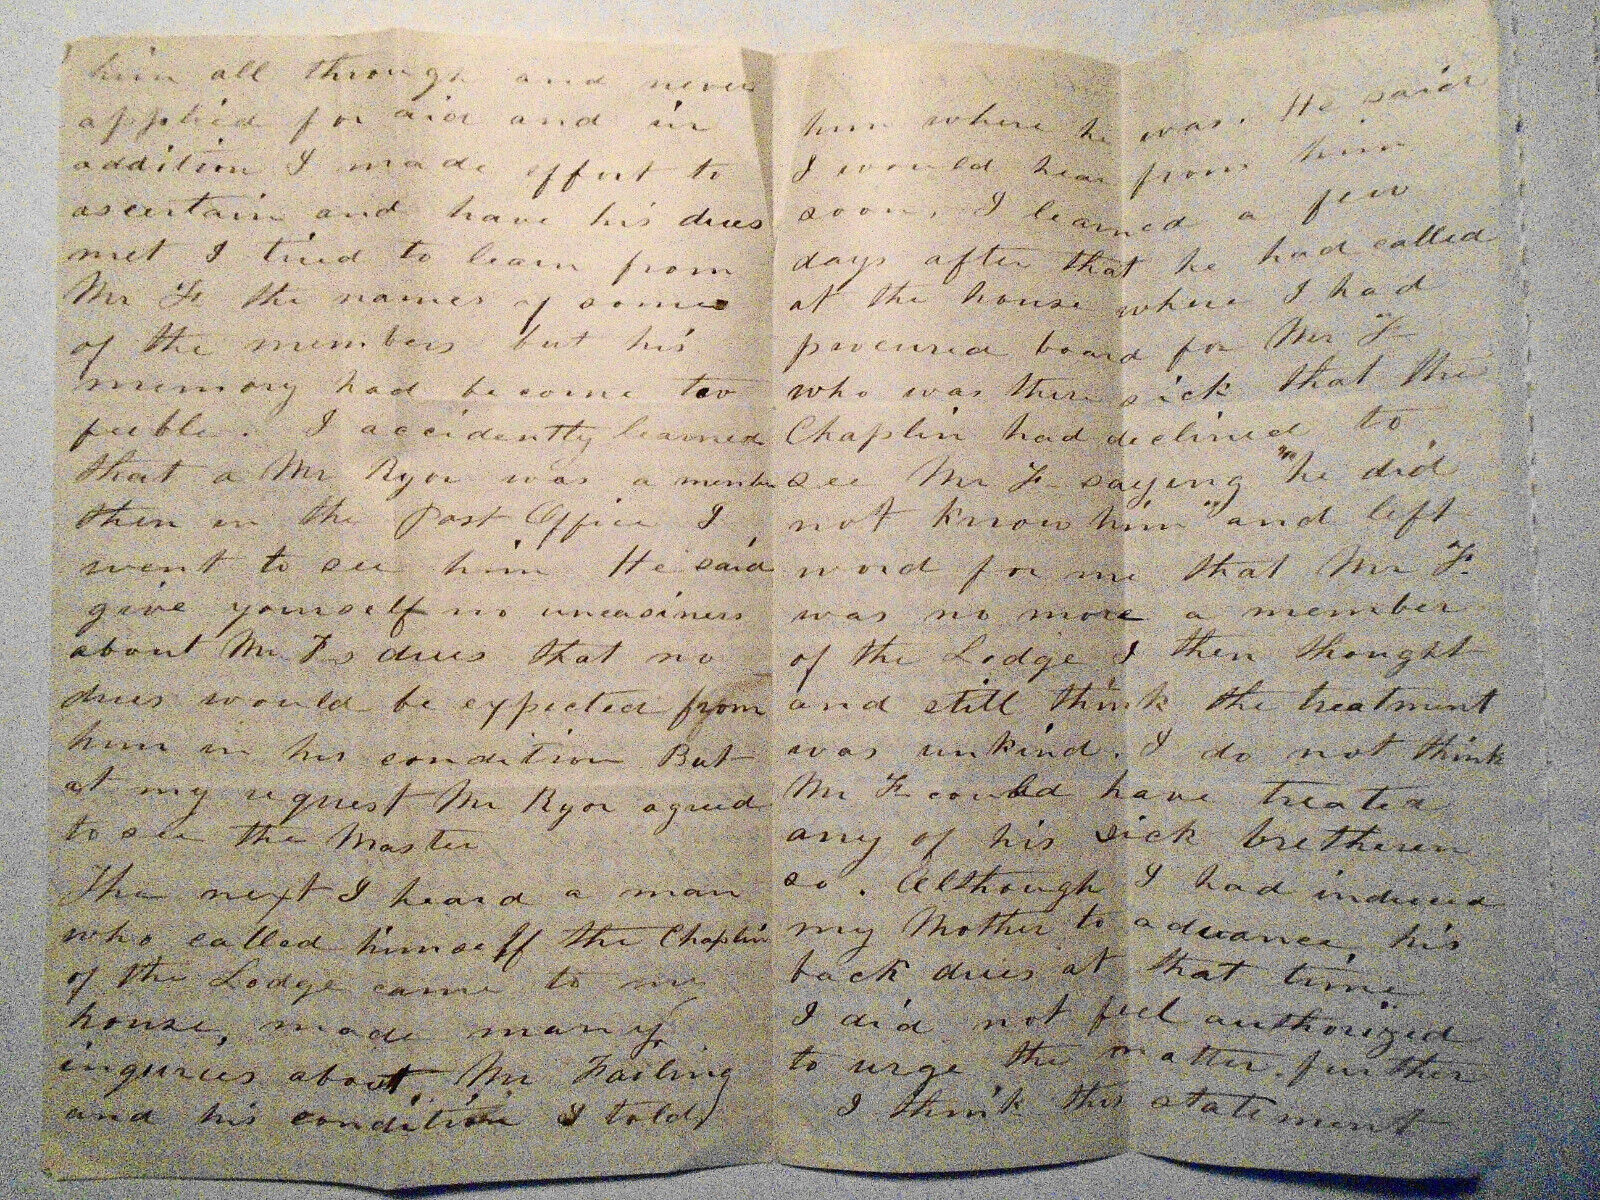 him all through and never
applied for aid and in
addition I made effort to
ascertain and have his dues
met I tried to learn from
Mr F. the names of some
of the members but his
memory had become too
feeble. I accidently learned
that a Mr Ryor was a member
then in the Post Office I
went to see him He said
give yourself no uneasiness
about Mr Fs dues that no
dues would be expected from
him in his condition But
at my request Mr Ryor agreed
to see the Master
The next I heard a man
who called himself the Chaplin
of the Lodge came to my
house, made many
inquries about Mr Failing
and his condition I told
him where he was. He said
I would hear from him
soon. I learned a few
days after that he had called
at the house where I had
procured board for Mr F
who was there sick that the
Chaplin had declined to
see Mr F saying "he did
not know him" and left
word for me that Mr F.
was no more a member
of the Lodge I then thought
and still think the treatment
was unkind. I do not think
Mr F could have treated
any of his sick bretheren
so. Although I had induced
my Mother to advance his
back dues at that time
I did not feel authorized
to urge the matter further
I think this statement